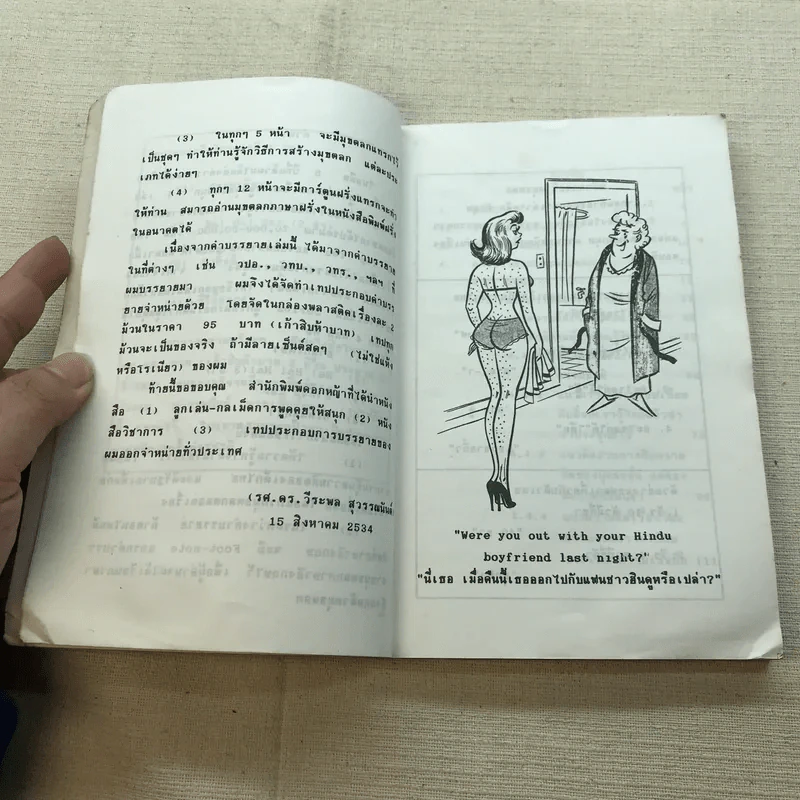 (3) ในทุกๆ 5 หน้า จะมีมุขตลกแทรกไว้
เป็นชุดๆ ทำให้ท่านรู้จักวิธีการสร้างมุขตลก แต่ละประ
เภทได้ง่ายๆ
(4) ทุกๆ 12 หน้าจะมีการ์ตูนฝรั่งแทรกจะทำ
ให้ท่าน สมารถอ่านมุขตลกภาษาฝรั่งในหนังสือพิมพ์ฝรั่ง
ในอนาคตได้
เนื่องจากคำบรรยายเล่มนี้ ได้มาจากคำบรรยาย
ในที่ต่างๆ เช่น วปอ., วทบ., วทร., ฯลฯ ที่
ผมบรรยายมา ผมจึงได้จัดทำเทปประกอบคำบรร
ยายจำหน่ายด้วย โดยจัดในกล่องพลาสติคเรื่องละ 2
ม้วนในราคา 95 บาท (เก้าสิบห้าบาท) เทปทุก
ม้วนจะเป็นของจริง ถ้ามีลายเซ็นต์สดๆ (ไม่ใช่แห้ง
หรือโรเนียว) ของผม
ท้ายนี้ขอขอบคุณ สำนักพิมพ์ดอกหญ้าที่ได้นำหนัง
สือ (1) ลูกเล่น-กลเม็ดการพูดคุยให้สนุก (2) หนัง
สือวิชาการ (3) เทปประกอบการบรรยายของ
ผมออกจำหน่ายทั่วประเทศ
(รศ.ดร.วีระพล สุวรรณนันต์
15 สิงหาคม 2534
"Were you out with your Hindu
boyfriend last night?"
"นี่เธอ เมื่อคืนนี้เธอออกไปกับแฟนชาวฮินดูหรือเปล่า?"